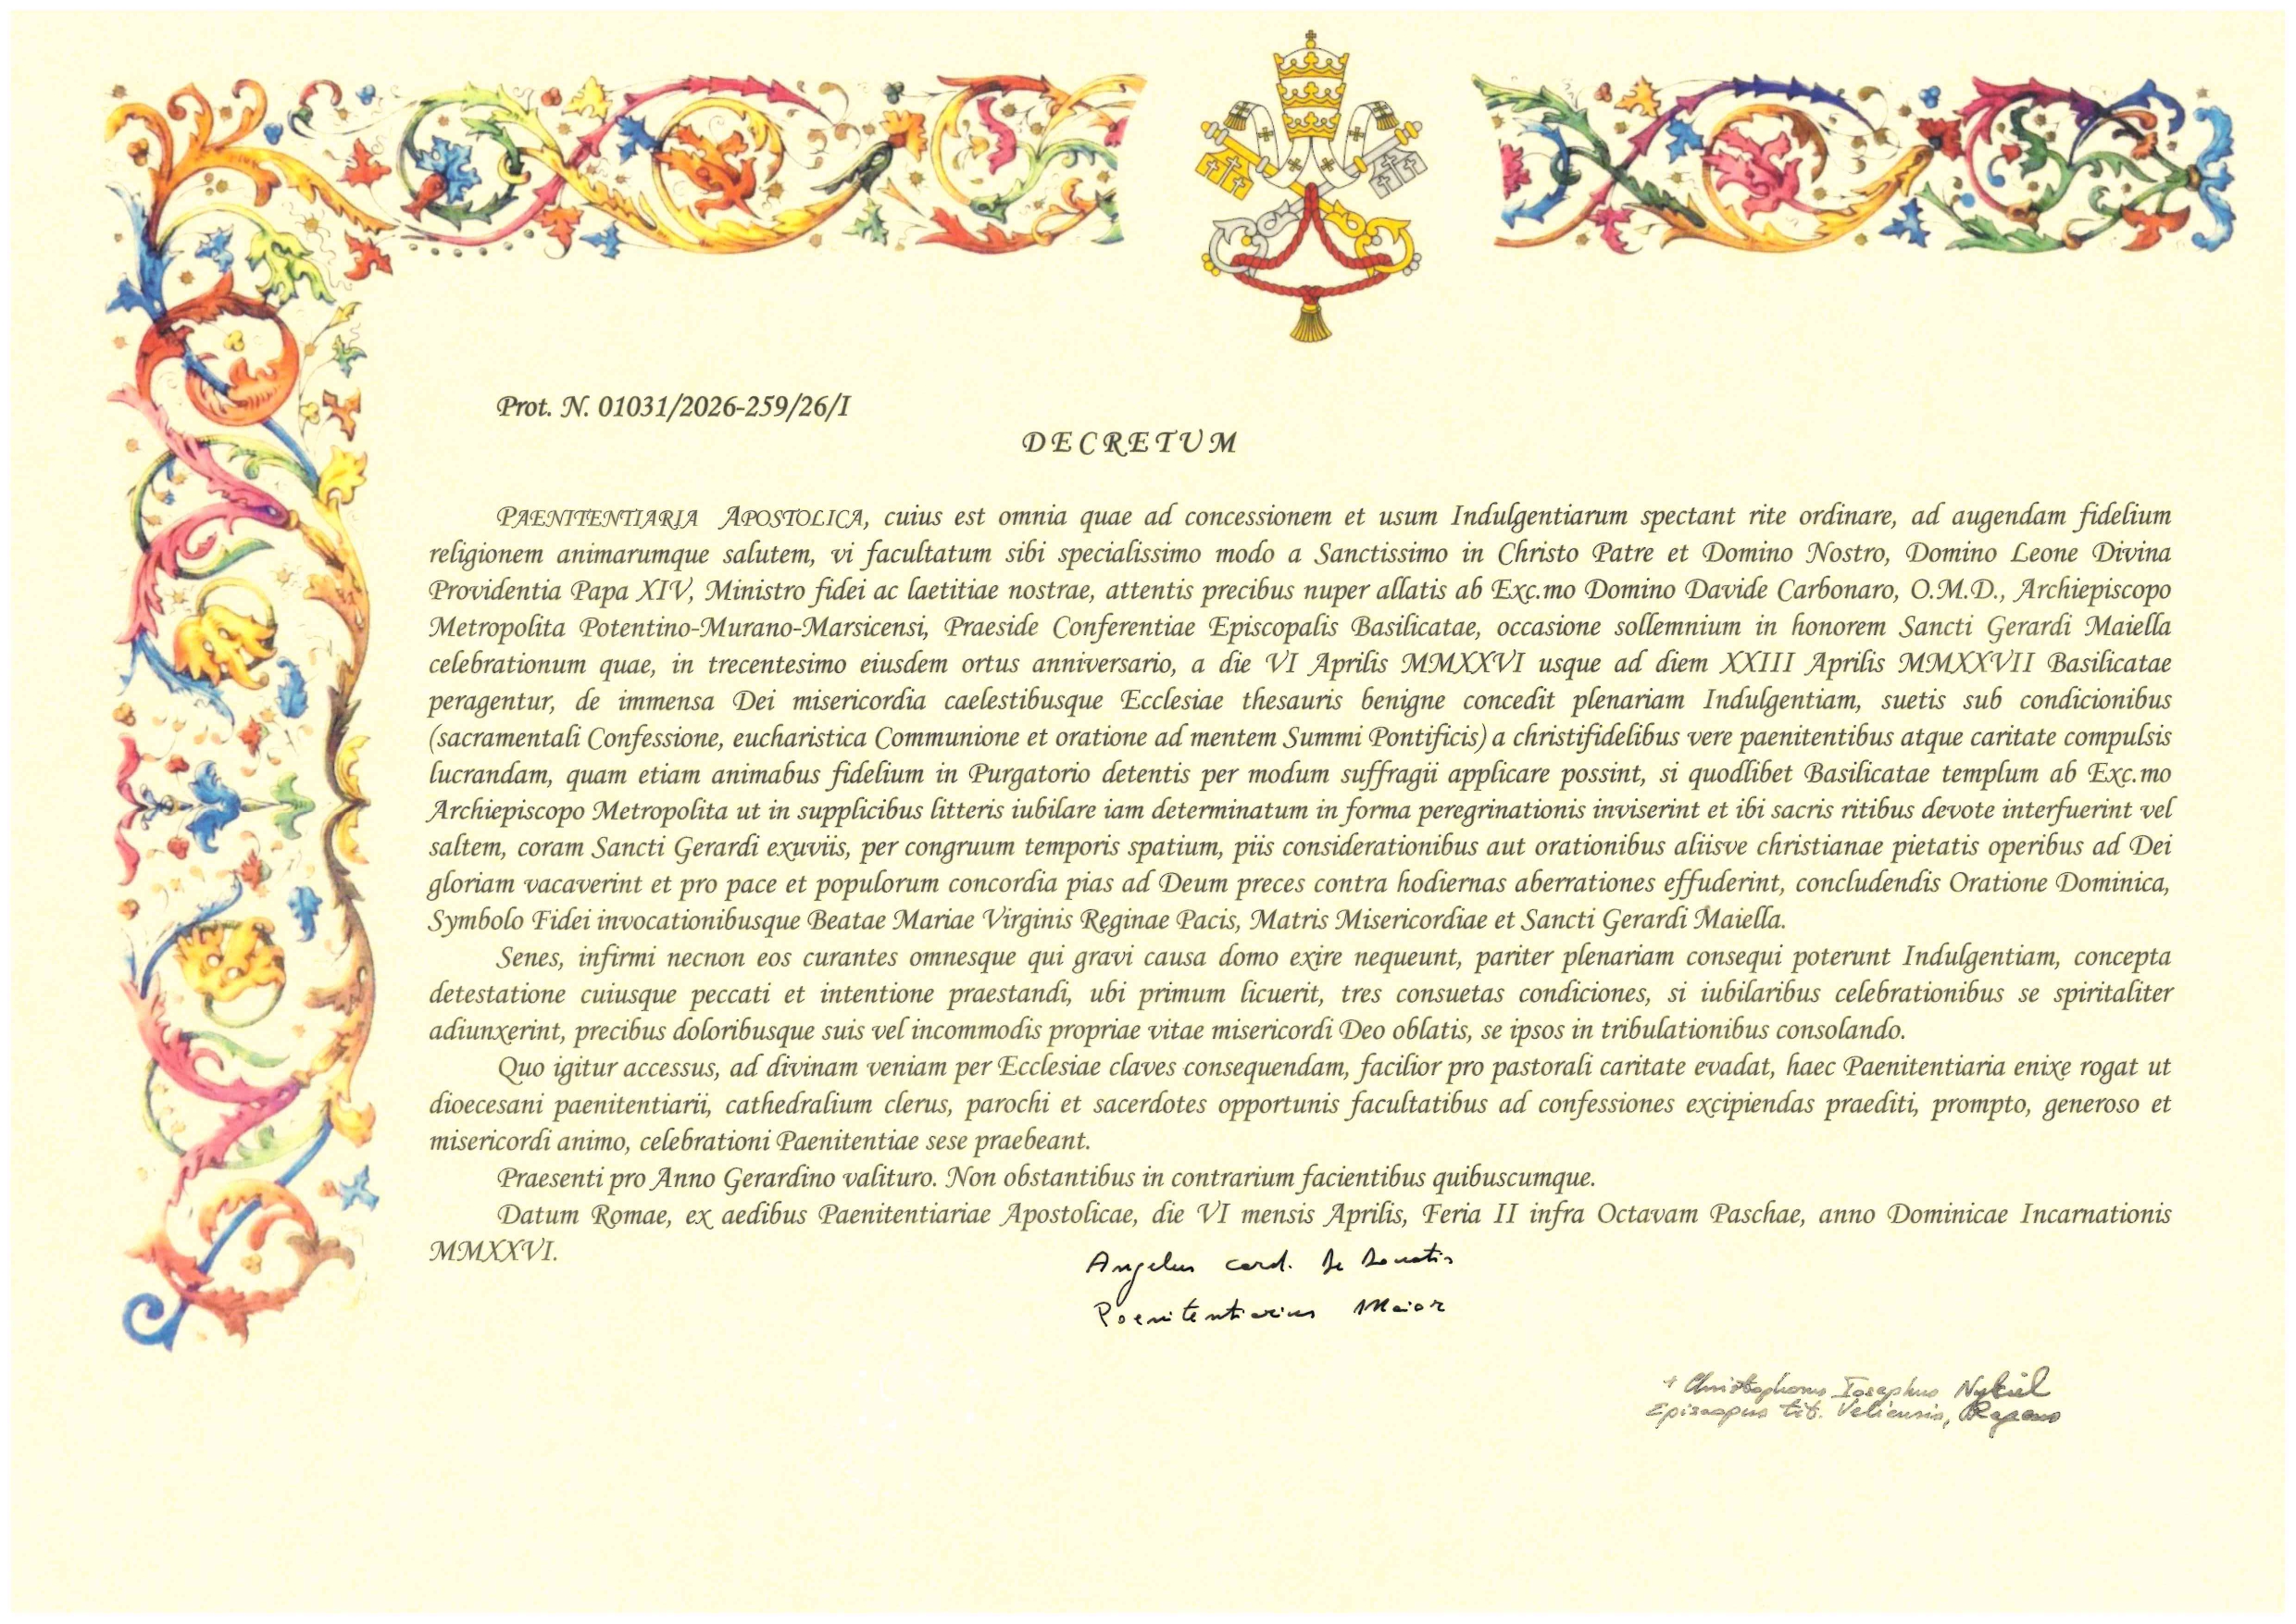 Prot. N. 01031/2026-259/26/I
DECRETUM
PAENITENTIARIA APOSTOLICA, cuius est omnia quae ad concessionem et usum Indulgentiarum spectant rite ordinare, ad augendam fidelium
religionem animarumque salutem, vi facultatum sibi specialissimo modo a Sanctissimo in Christo Patre et Domino Nostro, Domino Leone Divina
Providentia Papa XIV, Ministro fidei ac laetitiae nostrae, attentis precibus nuper allatis ab Exc.mo Domino Davide Carbonaro, O.M.D., Archiepiscopo
Metropolita Potentino-Murano-Marsicensi, Praeside Conferentiae Episcopalis Basilicatae, occasione sollemnium in honorem Sancti Gerardi Maiella
celebrationum quae, in trecentesimo eiusdem ortus anniversario, a die VI Aprilis MMXXVI usque ad diem XXIII Aprilis MMXXVII Basilicatae
peragentur, de immensa Dei misericordia caelestibusque Ecclesiae thesauris benigne concedit plenariam Indulgentiam, suetis sub condicionibus
(sacramentali Confessione, eucharistica Communione et oratione ad mentem Summi Pontificis) a christifidelibus vere paenitentibus atque caritate compulsis
lucrandam, quam etiam animabus fidelium in Purgatorio detentis per modum suffragii applicare possint, si quodlibet Basilicatae templum ab Exc.mo
Archiepiscopo Metropolita ut in supplicibus litteris iubilare iam determinatum in forma peregrinationis inviserint et ibi sacris ritibus devote interfuerint vel
saltem, coram Sancti Gerardi exuviis, per congruum temporis spatium, piis considerationibus aut orationibus aliisve christianae pietatis operibus ad Dei
gloriam vacaverint et pro pace et populorum concordia pias ad Deum preces contra hodiernas aberrationes effuderint, concludendis Oratione Dominica,
Symbolo Fidei invocationibusque Beatae Mariae Virginis Reginae Pacis, Matris Misericordiae et Sancti Gerardi Maiella.
Senes, infirmi necnon eos curantes omnesque qui gravi causa domo exire nequeunt, pariter plenariam consequi poterunt Indulgentiam, concepta
detestatione cuiusque peccati et intentione praestandi, ubi primum licuerit, tres consuetas condiciones, si iubilaribus celebrationibus se spiritaliter
adiunxerint, precibus doloribusque suis vel incommodis propriae vitae misericordi Deo oblatis, se ipsos in tribulationibus consolando.
Quo igitur accessus, ad divinam veniam per Ecclesiae claves consequendam, facilior pro pastorali caritate evadat, haec Paenitentiaria enixe rogat ut
dioecesani paenitentiarii, cathedralium clerus, parochi et sacerdotes opportunis facultatibus ad confessiones excipiendas praediti, prompto, generoso et
misericordi animo, celebrationi Paenitentiae sese praebeant.
Praesenti pro Anno Gerardino valituro. Non obstantibus in contrarium facientibus quibuscumque.
Datum Romae, ex aedibus Paenitentiariae Apostolicae, die VI mensis Aprilis, Feria II infra Octavam Paschae, anno Dominicae Incarnationis
MMXXVI.
Angelus card. De Donatis
Paenitentiarius Maior
+ Christophorus Iosephus Nykiel
Episcopus tit. Veliensis, Regens